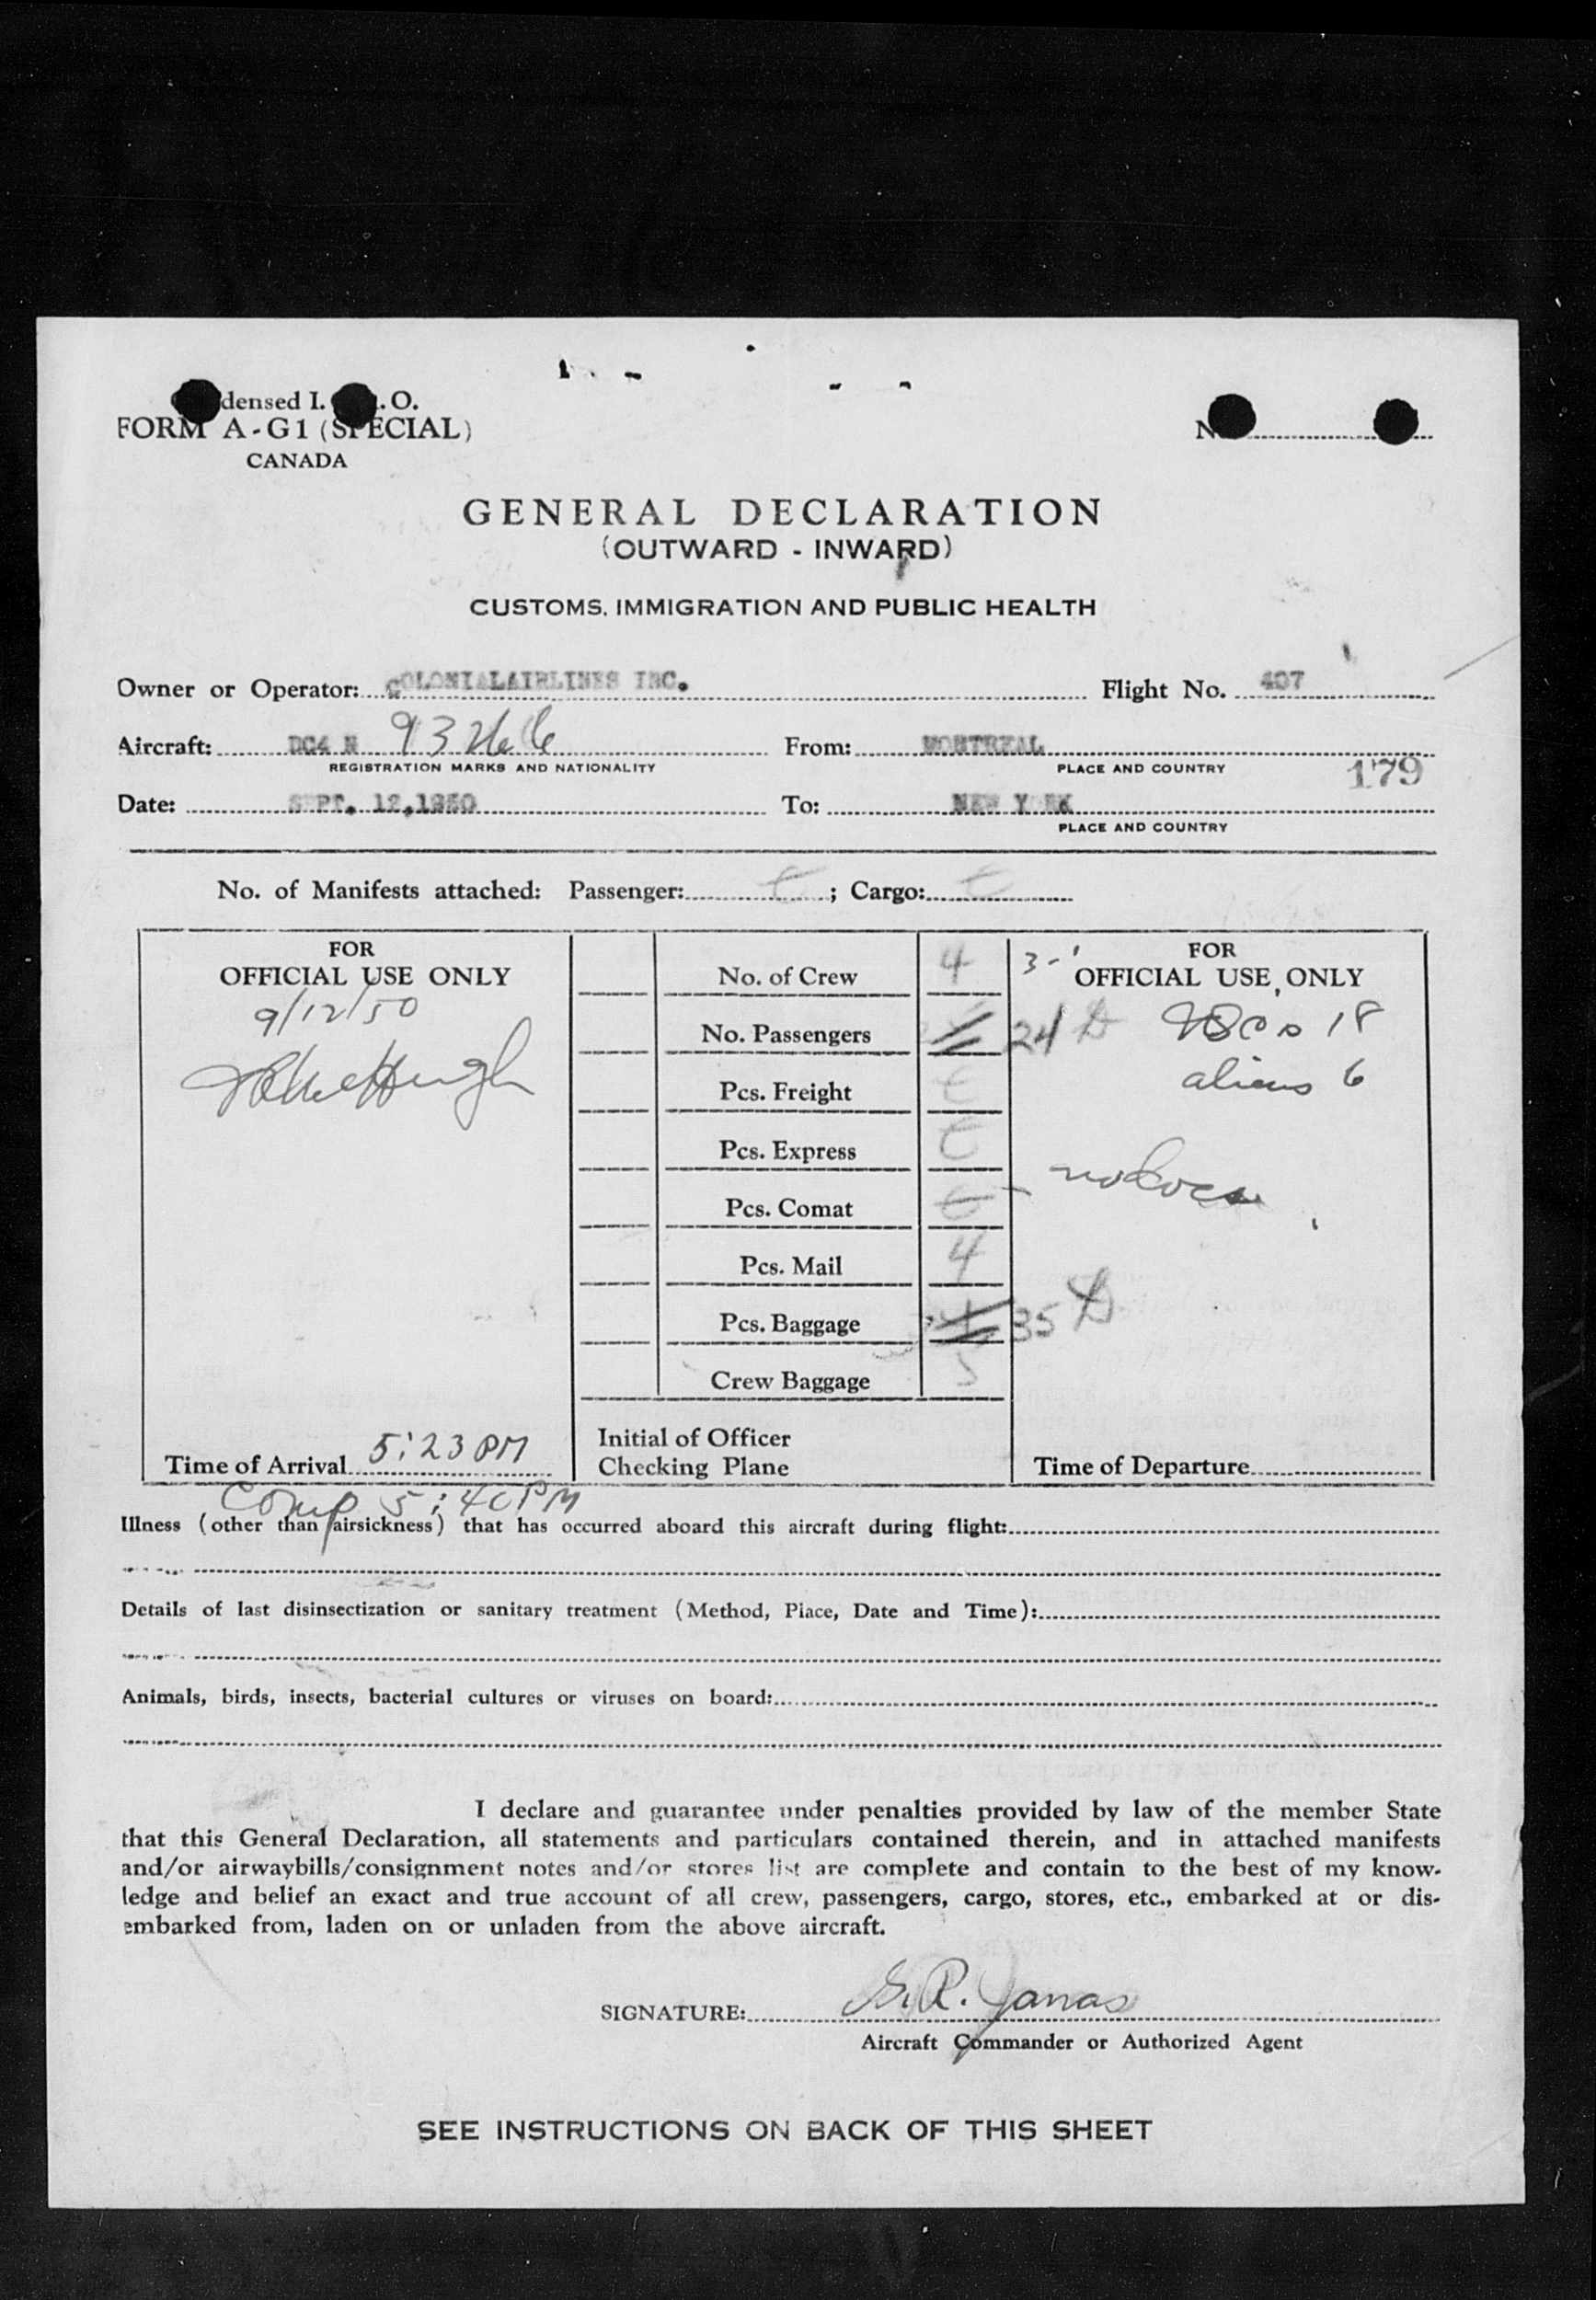 densed I. .O.
FORM A-G1 (SPECIAL)
CANADA
GENERAL DECLARATION
(OUTWARD - INWARD)
CUSTOMS, IMMIGRATION AND PUBLIC HEALTH
Owner or Operator: COLONIALAIRLINES INC. Flight No. 407
Aircraft: DC4 N 93 From: MONTREAL
REGISTRATION MARKS AND NATIONALITY PLACE AND COUNTRY
179
Date: SEPT. 12,1950 To: NEW YORK
PLACE AND COUNTRY
No. of Manifests attached: Passenger: ; Cargo:
FOR
OFFICIAL USE ONLY
9/12/50
Time of Arrival 5:23 PM
No. of Crew 4
No. Passengers 24
Pcs. Freight
Pcs. Express
Pcs. Comat
Pcs. Mail 4
Pcs. Baggage 35
Crew Baggage 5
Initial of Officer
Checking Plane
3-1
FOR
OFFICIAL USE ONLY
18
aliens 6
Time of Departure
Comp 5:40 PM
Illness (other than airsickness) that has occurred aboard this aircraft during flight:
Details of last disinsectization or sanitary treatment (Method, Place, Date and Time):
Animals, birds, insects, bacterial cultures or viruses on board:
I declare and guarantee under penalties provided by law of the member State
that this General Declaration, all statements and particulars contained therein, and in attached manifests
and/or airwaybills/consignment notes and/or stores list are complete and contain to the best of my know-
ledge and belief an exact and true account of all crew, passengers, cargo, stores, etc., embarked at or dis-
embarked from, laden on or unladen from the above aircraft.
SIGNATURE: R. Janas
Aircraft Commander or Authorized Agent
SEE INSTRUCTIONS ON BACK OF THIS SHEET